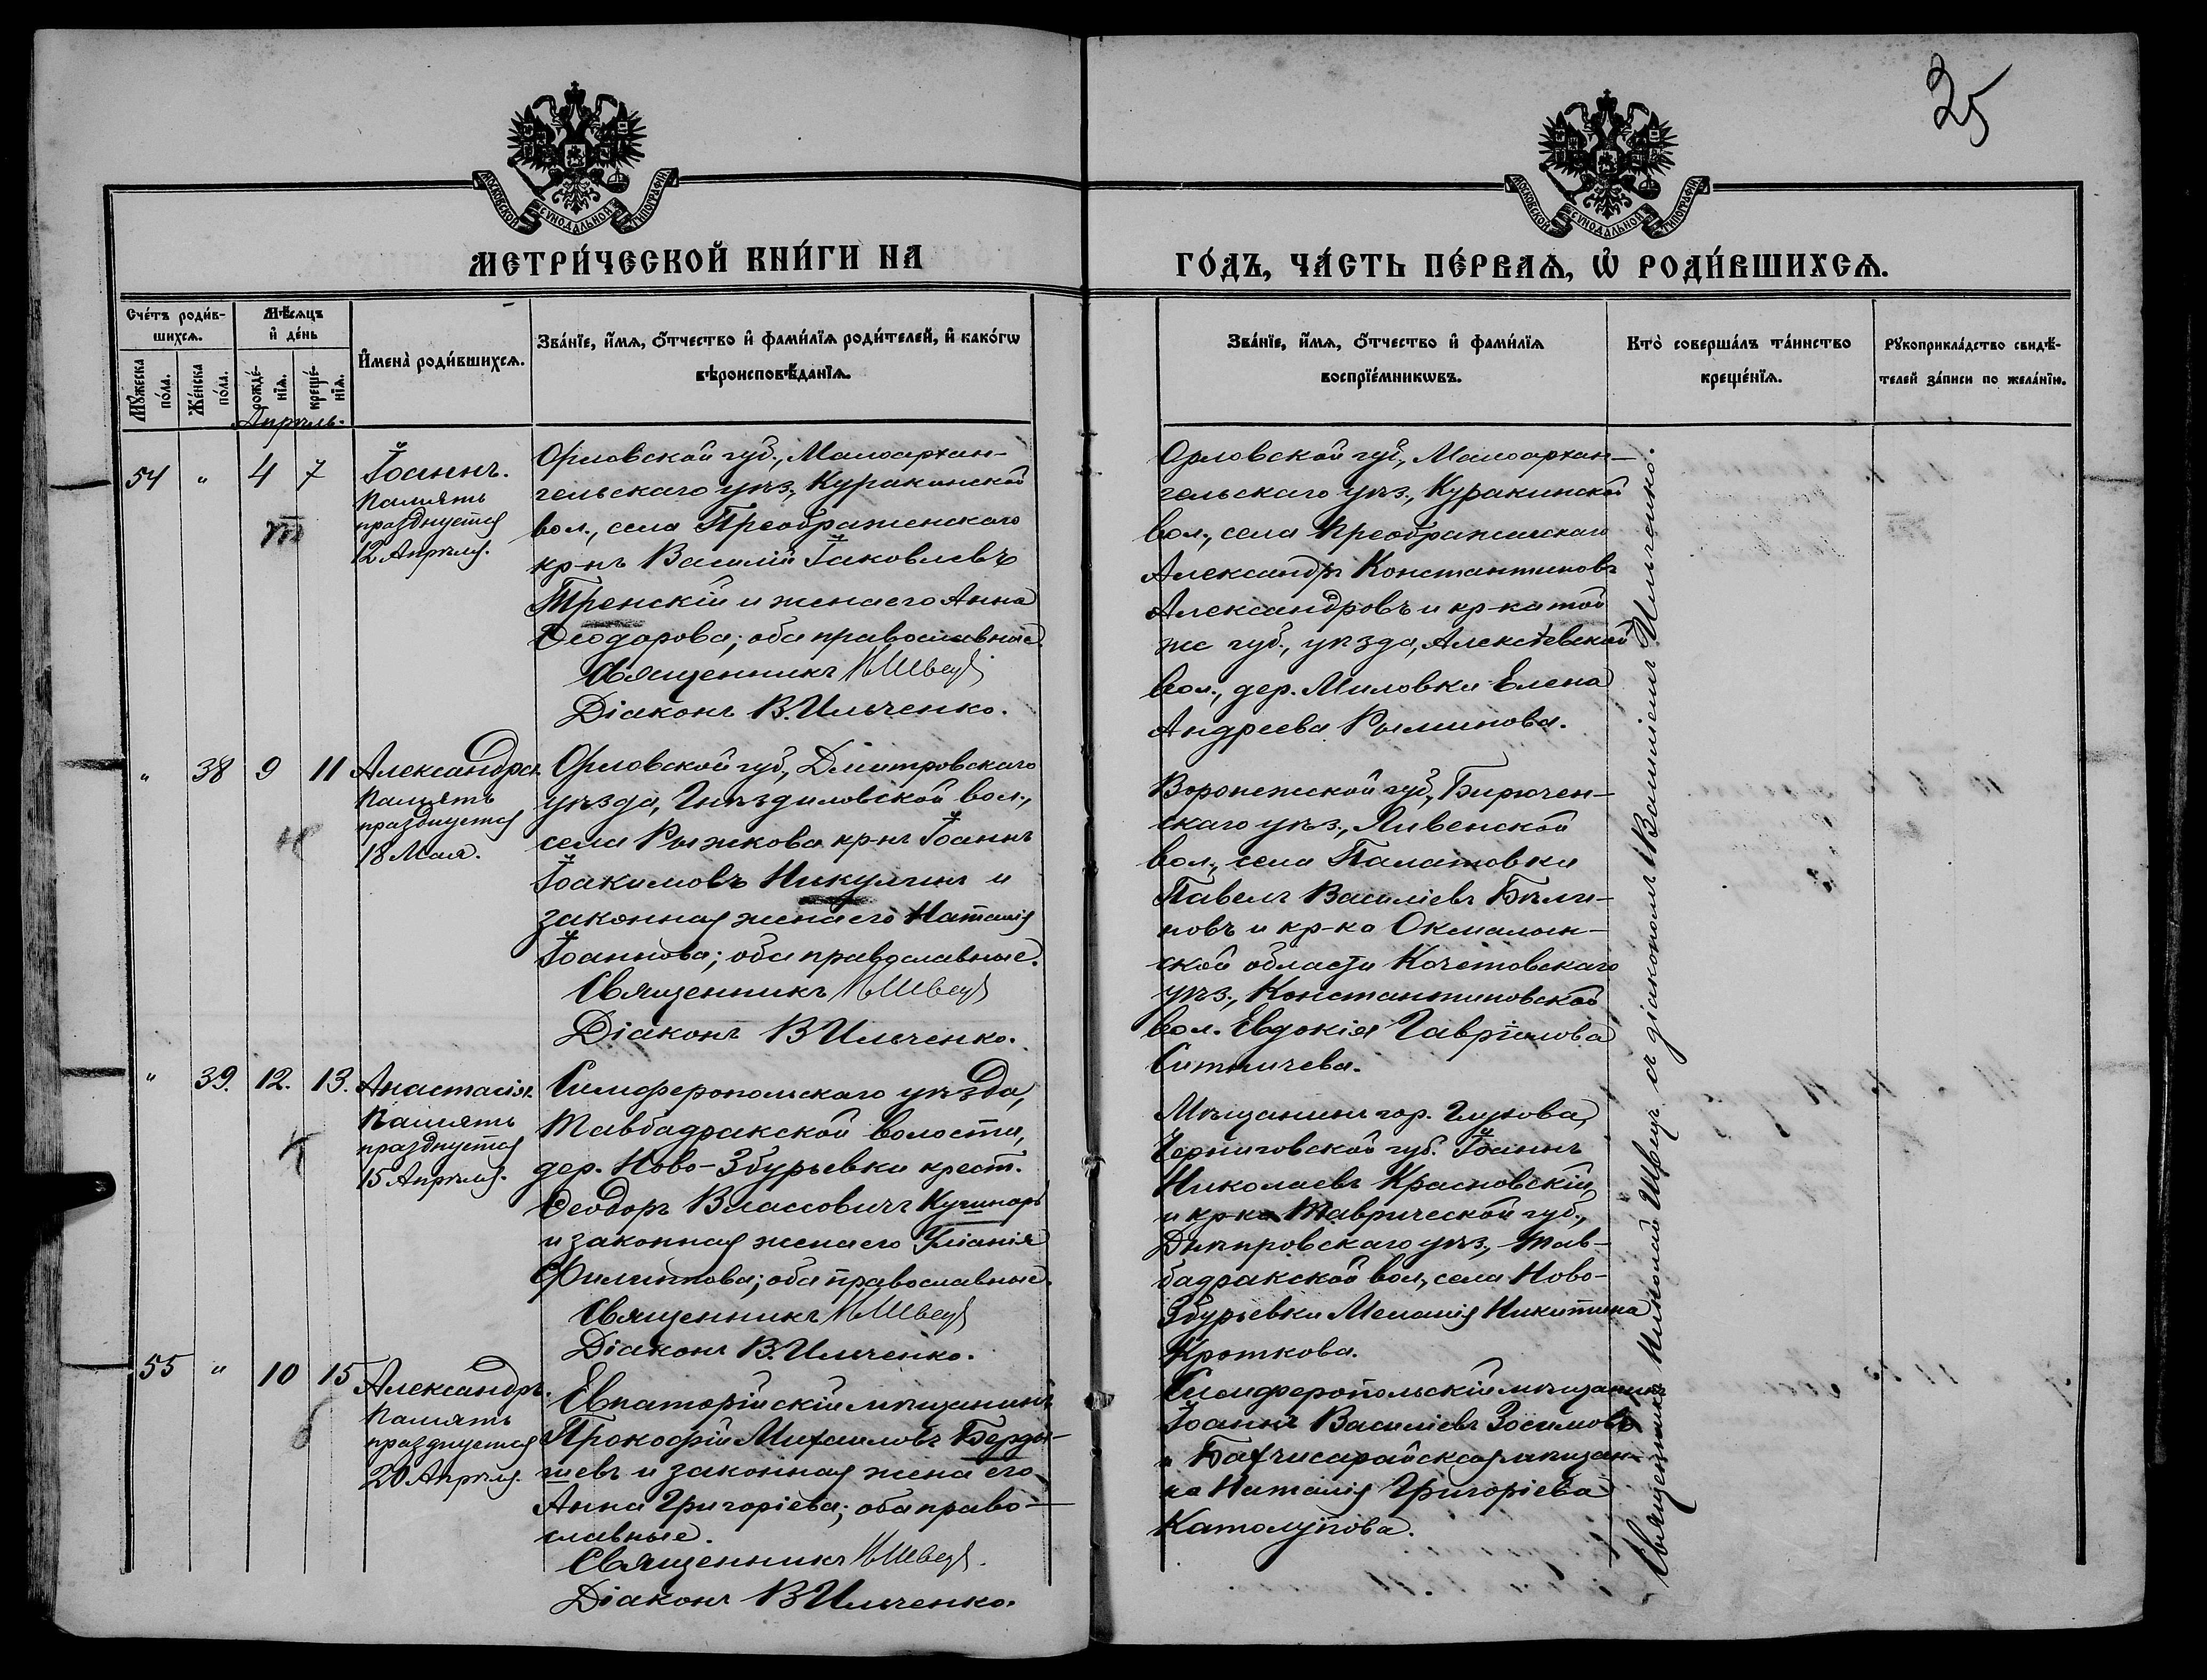 25
МОСКОВСКОЙ СѴНОДАЛЬНОЙ ТИПОГРАФІИ
МОСКОВСКОЙ СѴНОДАЛЬНОЙ ТИПОГРАФІИ
МЕТРИ́ЧЕСКОЙ КНИ́ГИ НА
ГО́ДЪ, ЧА́СТЬ ПЕ́РВАѦ, Ѡ҆ РОДИ́ВШИХСѦ.
Сче́тъ роди́в-
шихсѧ.
Мꙋ́жеска по́ла.
Же́нска по́ла.
Мѣ́сѧцъ
и҆ де́нь
рожде́-
нїѧ.
креще́-
нїѧ.
Апрѣль.
И҆мена̀ роди́вшихсѧ.
Зва́нїе, и҆́мѧ, ѻ҆́тчество и҆ фами́лїѧ роди́телей, и҆ како́гѡ
вѣроисповѣ́данїѧ.
Зва́нїе, и҆́мѧ, ѻ҆́тчество и҆ фами́лїѧ
воспрїе́мникѡвъ.
Кто̀ соверша́лъ та́инство
креще́нїѧ.
Рꙋкоприкла́дство свидѣ́-
телей за́писи по жела́нїю.
54 " 4 7
Іоаннъ.
Память
празднуется
12 Апрѣля.
Орловской губ., Малоархан-
гельскаго уѣз., Куракинской
вол., села Преображенскаго
кр-нъ Василій Іаковлевъ
Тренскій и жена его Анна
Ѳеодорова; оба православные.
Священникъ Н Швецъ
Діаконъ В. Ильченко.
Орловской губ., Малоархан-
гельскаго уѣз., Куракинской
вол., села Преображенскаго
Александръ Константиновъ
Александровъ и кр-ка той
же губ., уѣзда, Алексѣевской
вол., дер. Миловки Елена
Андреева Рыминова.
" 38 9 11
Александра.
Память
празднуется
18 Мая.
Орловской губ., Дмитровскаго
уѣзда, Гнѣздиловской вол.,
села Рыжкова кр-нъ Іоаннъ
Іоакимовъ Никулинъ и
законная жена его Наталія
Іоаннова; оба православные.
Священникъ Н Швецъ
Діаконъ В Ильченко.
Воронежской губ., Бирючен-
скаго уѣз., Ливенской
вол., села Палатовки
Павелъ Василіевъ Бѣли-
новъ и кр-ка Окмалин-
ской области Кочетовскаго
уѣз., Константиновской
вол. Евдокія Гавріилова
Ситничева.
" 39. 12. 13.
Анастасія.
Память
празднуется
15 Апрѣля.
Симферопольскаго уѣзда,
Тавбадракской волости,
дер. Ново-Збурьевки крест.
Ѳеодоръ Власовичъ Кушнаръ
и законная жена его Уліанія
Филиппова; оба православные.
Священникъ Н Швецъ
Діаконъ В. Ильченко.
Мѣщанинъ гор. Глухова,
Черниговской губ. Іоаннъ
Николаевъ Красновскій
и кр-ка Таврической губ.,
Днѣпровскаго уѣз., Тав-
бадракской вол., села Ново-
Збурьевки Меланія Никитина
Кроткова.
55 " 10 15
Александръ.
Память
празднуется
20 Апрѣля.
Евпаторійскій мѣщанинъ
Прокофій Михаиловъ Берды-
шевъ и законная жена его
Анна Григоріева; оба право-
славные.
Священникъ Н Швецъ.
Діаконъ В Ильченко.
Симферопольскій мѣщанинъ
Іоаннъ Василіевъ Зосимовъ
и Бахчисарайская мѣщан-
ка Наталія Григоріева
Католупова.
Священникъ Николай Швецъ съ діакономъ Василіемъ Ильченко.